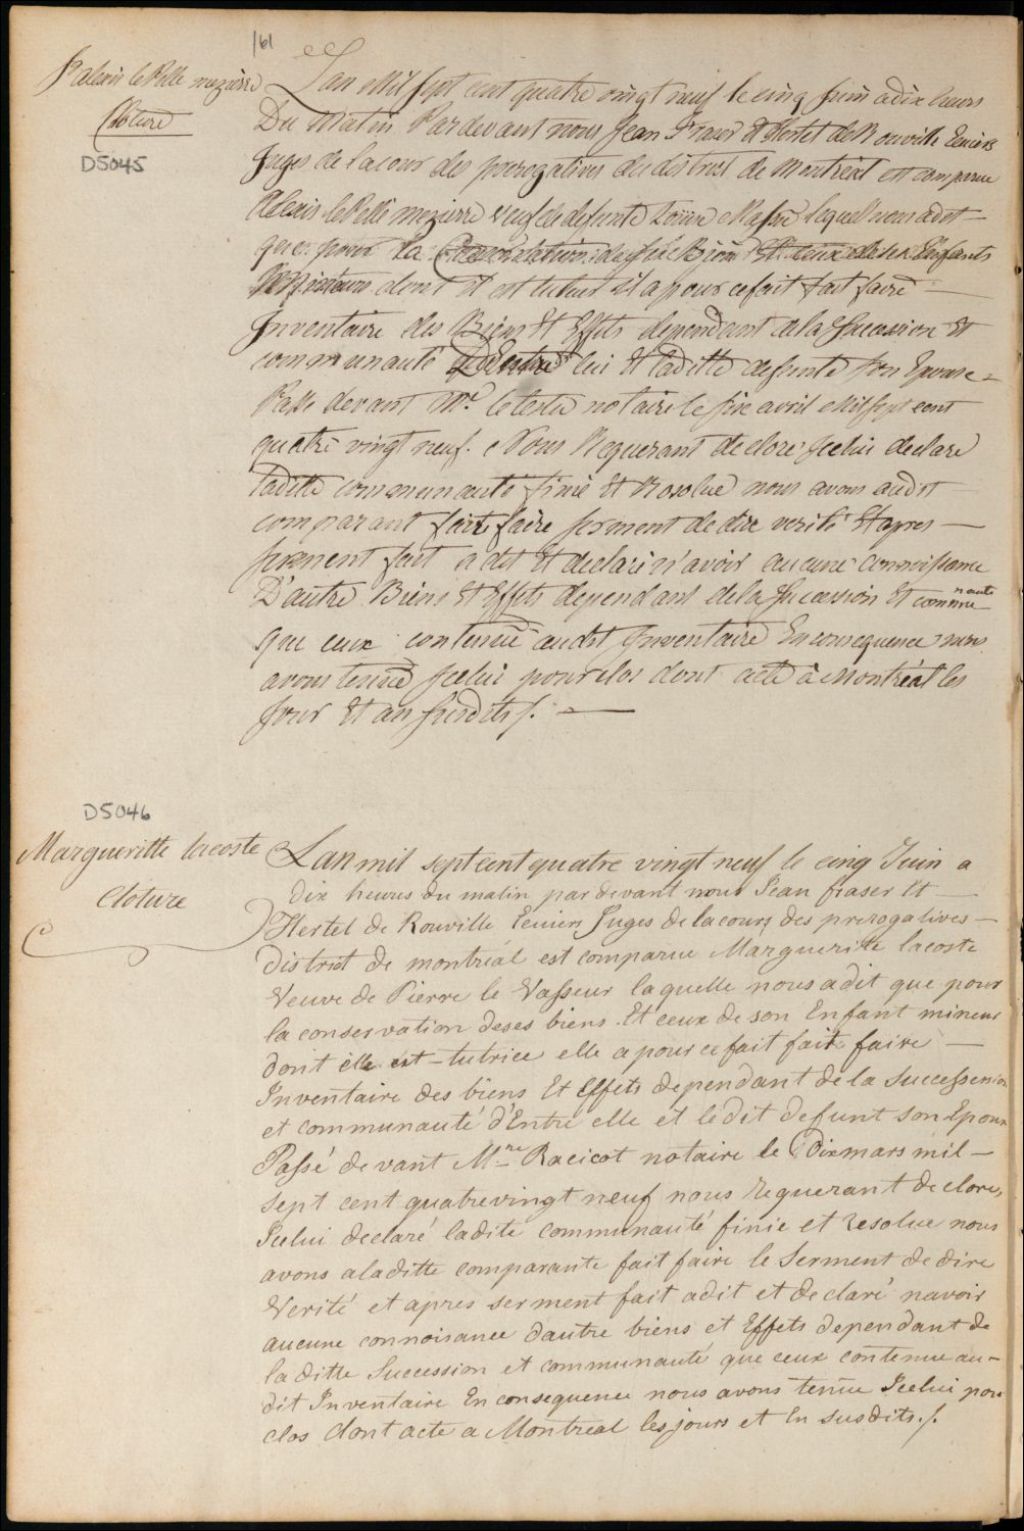 161
P. alexis le Pellé mezierre
Cloture
D5045
Lan Mil sept cent quatre vingt neuf le cinq juin a dix heures
Du Matin Pardevant nous Jean Fraser Et Hertel de Rouville Ecuiers
Juges de la cour des prerogatives du district de Montreal est comparu
Alexis le Pellé mezierre veuf de defunte Louise lequel nous a dit
que pour la Conservation de ses Biens Et ceux de ses Enfants
Mineurs dont il est tuteur il a pour ce fait fait faire
Inventaire des Biens Et Effets dependant de la Succession Et
communauté D'Entre lui Et laditte defunte son Epouse
Passé devant Mr. le notaire le six avril Mil sept cent
quatre vingt neuf. Nous Requerant de clore Icelui declaré
laditte communauté finie Et Resolue nous avons audit
comparant fait faire serment de dire verité Et apres
serment fait a dit Et declaré n'avoir aucune connoissance
D'autre Biens Et Effets dependant de la Succession Et commu naute
que ceux contenue audit Inventaire En consequence nous
avons tenue Icelui pour clos dont acte à Montréal les
Jour Et an susdits /.
D5046
Margueritte lacoste
Cloture
Lan mil sept cent quatre vingt neuf le cinq Juin a
dix heures du matin pardevant nous Jean fraser Et
Hertel de Rouville Ecuiers Juges de la cours des prerogatives
district de montréal est comparue Marguerite lacoste
Veuve de Pierre le Vasseur laquelle nous a dit que pour
la conservation de ses biens Et ceux de son Enfant mineur
dont elle est tutrice elle a pour ce fait fait faire
Inventaire des biens Et Effets dependant de la Succession
et communauté d'Entre elle et le dit defunt son Epoux
Passé devant Mre Racicot notaire le Dix mars mil
sept cent quatrevingt neuf nous requerant de clore,
Icelui declaré ladite communauté finie et resolue nous
avons a laditte comparante fait faire le Serment de dire
Verité et apres serment fait a dit et declaré navoir
aucune connoisance dautre biens et Effets dependant de
la ditte Succession et communauté que ceux contenue au-
dit Inventaire En consequence nous avons tenue Icelui pour
clos dont acte a Montreal les jours et en susdits ./.